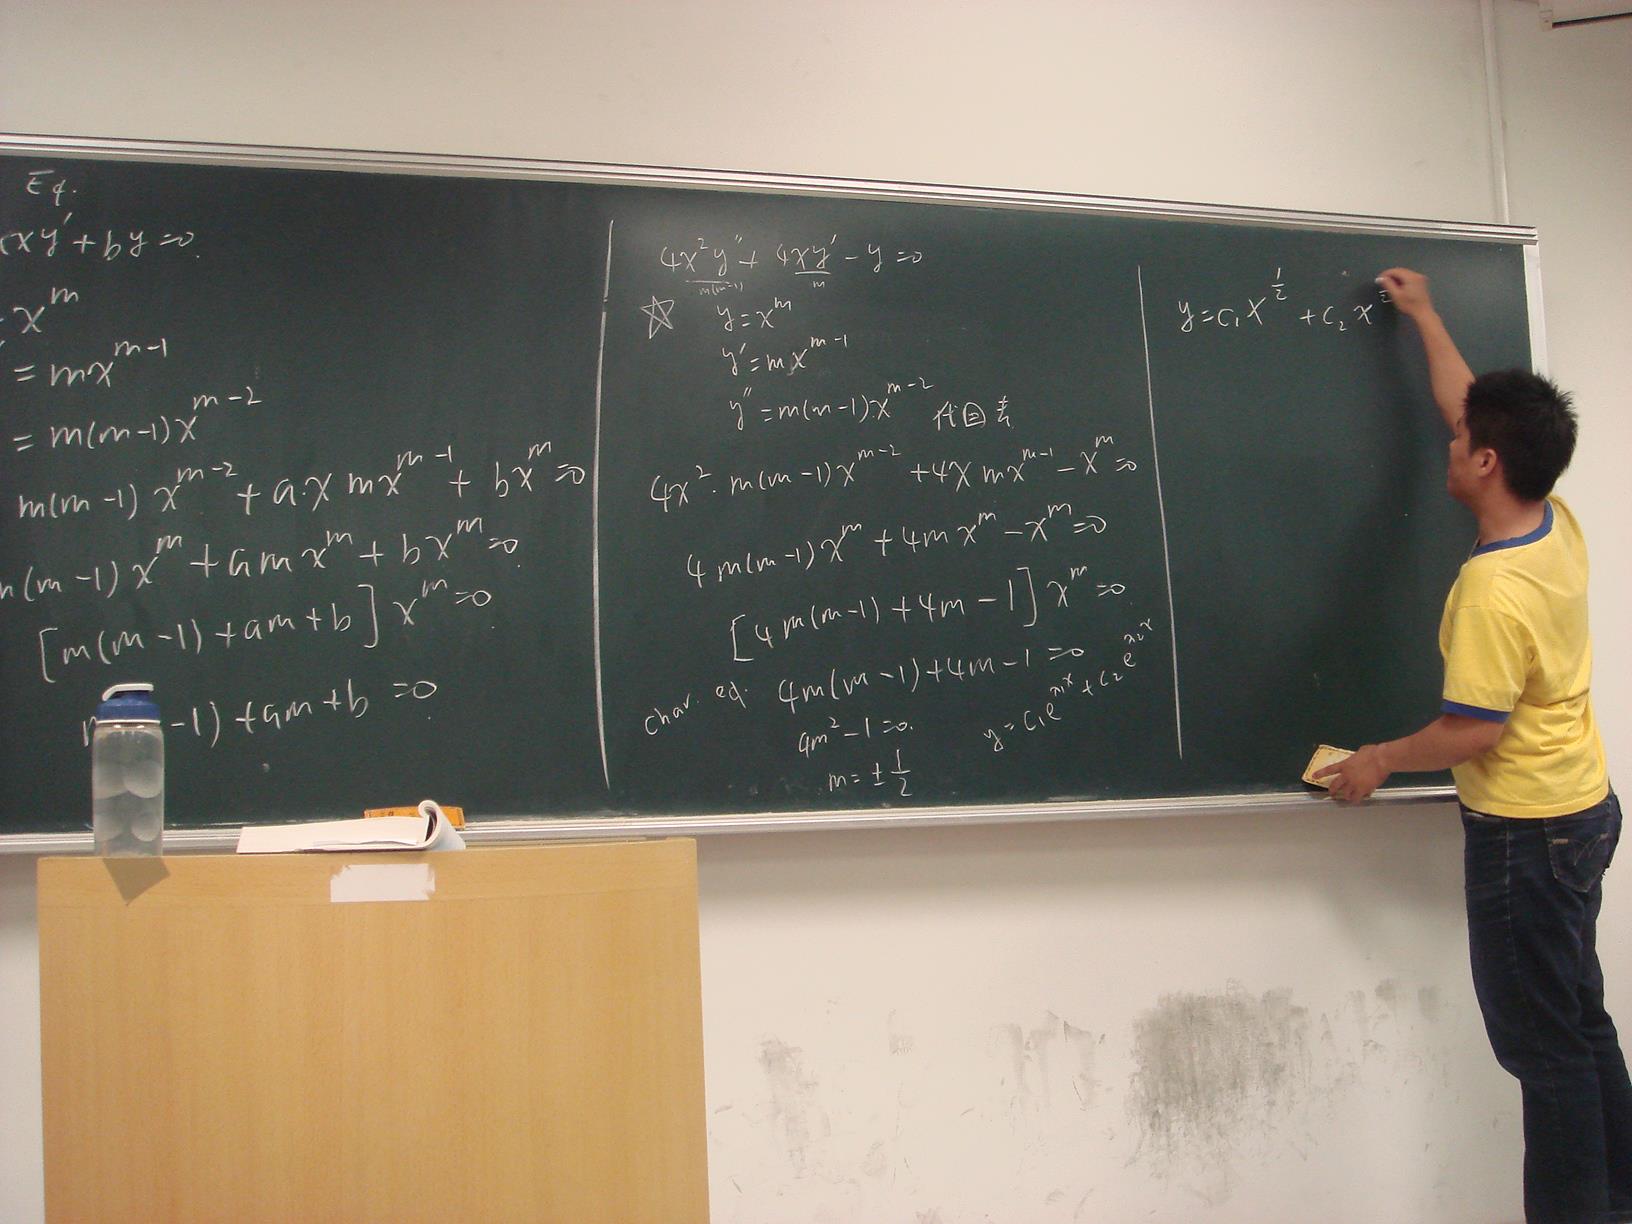 Eq.
xy′ + by = 0
x^m
= mx^{m-1}
= m(m-1)x^{m-2}
m(m-1)x^{m-2} + a·x mx^{m-1} + bx^m = 0
(m-1)x^m + amx^m + bx^m = 0
[m(m-1) + am + b]x^m = 0
-1) + am + b = 0
4x²y″ + 4xy′ - y = 0
m(m-1) m
☆ y = x^m
y′ = mx^{m-1}
y″ = m(m-1)·x^{m-2} 代回
4x²·m(m-1)x^{m-2} + 4x mx^{m-1} - x^m = 0
4m(m-1)x^m + 4mx^m - x^m = 0
[4m(m-1) + 4m - 1]x^m = 0
char. eq. 4m(m-1) + 4m - 1 = 0
4m² - 1 = 0.
m = ± 1/2
y = c₁e^{λ₁x} + c₂e^{λ₂x}
y = c₁x^{1/2} + c₂x